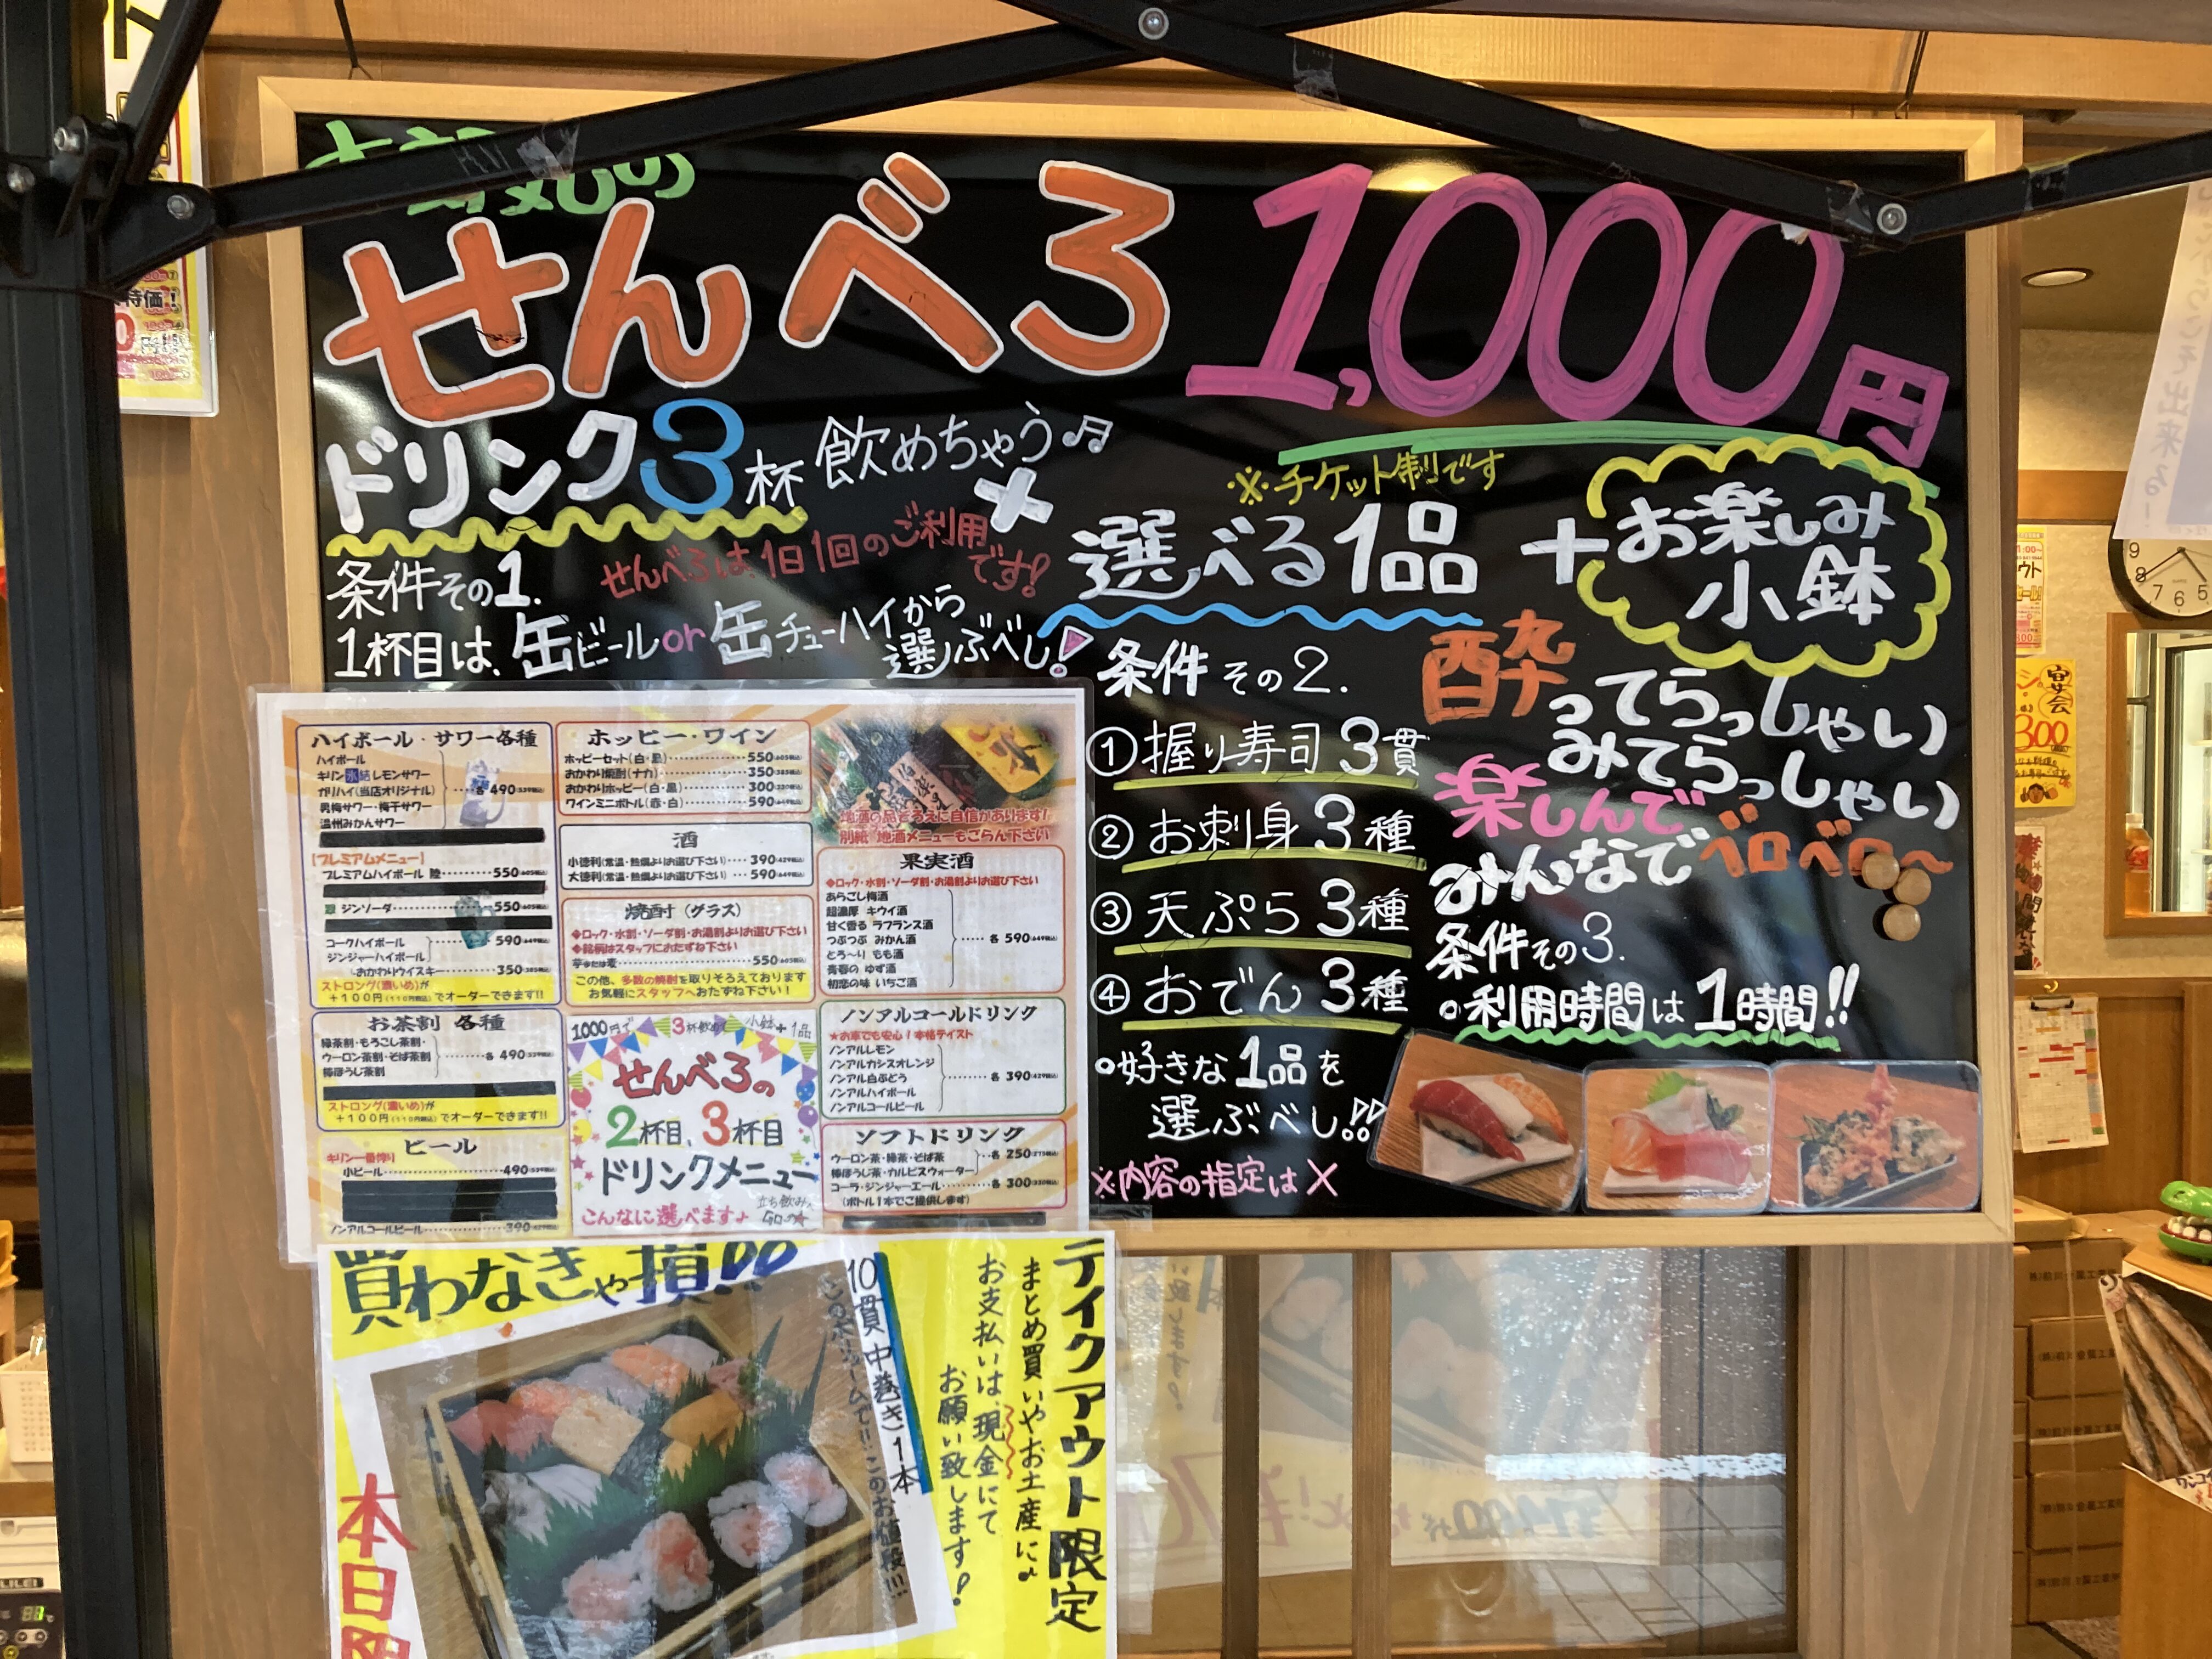 せんべろ 1,000円
ドリンク3杯飲めちゃう♬
※チケット制です
×
選べる1品
+お楽しみ
小鉢
せんべろは、1日1回のご利用
です!
条件その1.
1杯目は、缶ビールor缶チューハイから
選ぶべし!
条件その2.
①握り寿司3貫
②お刺身3種
③天ぷら3種
④おでん3種
○好きな1品を
選ぶべし!!
※内容の指定は×
酔ってらっしゃい
みてらっしゃい
楽しんで
みんなでベロベロ〜
条件その3.
○利用時間は1時間!!
ハイボール・サワー各種
ハイボール
キリン氷結レモンサワー
ガリハイ(当店オリジナル)
男梅サワー・梅干サワー
温州みかんサワー
各490(539税込)
【プレミアムメニュー】
プレミアムハイボール 陸 550(605税込)
翠 ジンソーダ 550(605税込)
コークハイボール
ジンジャーハイボール
590(649税込)
└おかわりウイスキー 350(385税込)
ストロング(濃いめ)が
+100円(110円税込)でオーダーできます!!
お茶割 各種
緑茶割・もろこし茶割・
ウーロン茶割・そば茶割
棒ほうじ茶割
各490(539税込)
ストロング(濃いめ)が
+100円(110円税込)でオーダーできます!!
ビール
キリン一番搾り
小ビール 490(539税込)
ノンアルコールビール 390(429税込)
ホッピー・ワイン
ホッピーセット(白・黒) 550(605税込)
おかわり焼酎(ナカ) 350(385税込)
おかわりホッピー(白・黒) 300(330税込)
ワインミニボトル(赤・白) 590(649税込)
酒
小徳利(常温・熱燗よりお選び下さい) 390(429税込)
大徳利(常温・熱燗よりお選び下さい) 590(649税込)
焼酎(グラス)
◆ロック・水割・ソーダ割・お湯割よりお選び下さい
◆銘柄はスタッフにおたずね下さい
芋または麦 550(605税込)
この他、多数の焼酎を取りそろえております
お気軽にスタッフへおたずね下さい!
1000円で 3杯飲めて 小鉢+1品
せんべろの
2杯目、3杯目
ドリンクメニュー
こんなに選べます♪
立ち飲み
地酒の品ぞろえに自信があります!
別紙 地酒メニューもごらん下さい
果実酒
◆ロック・水割・ソーダ割・お湯割よりお選び下さい
あらごし梅酒
超濃厚 キウイ酒
甘く香る ラフランス酒
つぶつぶ みかん酒
とろ〜り もも酒
青春の ゆず酒
初恋の味 いちご酒
各590(649税込)
ノンアルコールドリンク
★お車でも安心!本格テイスト
ノンアルレモン
ノンアルカシスオレンジ
ノンアル白ぶどう
ノンアルハイボール
ノンアルコールビール
各390(429税込)
ソフトドリンク
ウーロン茶・緑茶・そば茶
棒ほうじ茶・カルピスウォーター
各250(275税込)
コーラ・ジンジャーエール 各300(330税込)
(ボトル1本でご提供します)
買わなきゃ損!!
テイクアウト限定
まとめ買いやお土産に♪
お支払いは、現金にて
お願い致します!
10貫中巻き1本
このボリュームで!!このお値段!!!
本日限